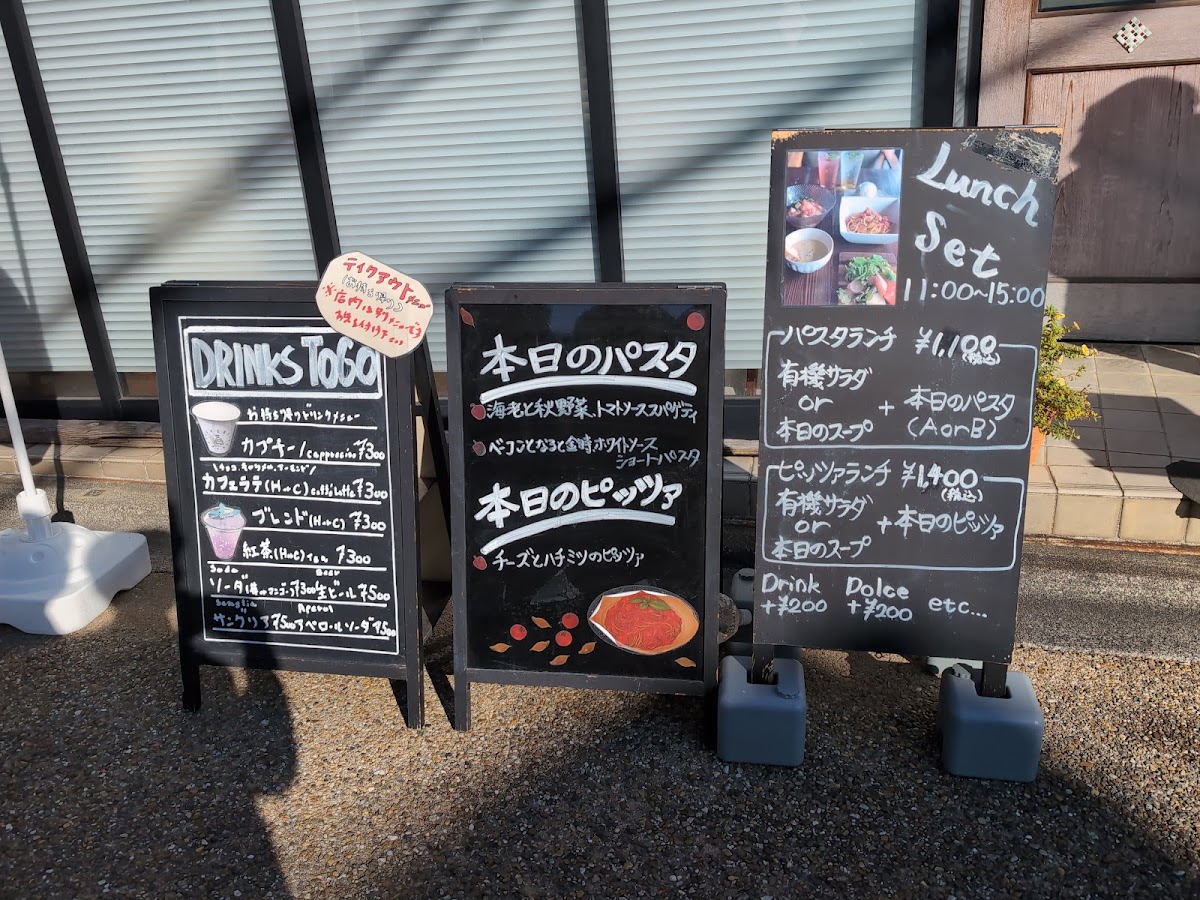 テイクアウトメニュー
(お持ち帰り)
※店内は別メニューです
お気を付け下さい
DRINKS TO GO
お持ち帰りドリンクメニュー
カプチーノ cappuccino ¥300
カフェラテ(H or C) caffè latte ¥300
ブレンド(H or C) ¥300
紅茶(H or C) Tea ¥300
Soda Beer
ソーダ ¥300 生ビール ¥500
Sangria Aperol
サングリア ¥500 アペロールソーダ ¥500
本日のパスタ
海老と秋野菜、トマトソーススパゲティ
ベーコンとなると金時、ホワイトソース
ショートパスタ
本日のピッツァ
チーズとハチミツのピッツァ
Lunch
Set
11:00~15:00
パスタランチ ¥1,100(税込)
有機サラダ
or + 本日のパスタ
本日のスープ (A or B)
ピッツァランチ ¥1,400
(税込)
有機サラダ
or + 本日のピッツァ
本日のスープ
Drink Dolce etc...
+¥200 +¥200